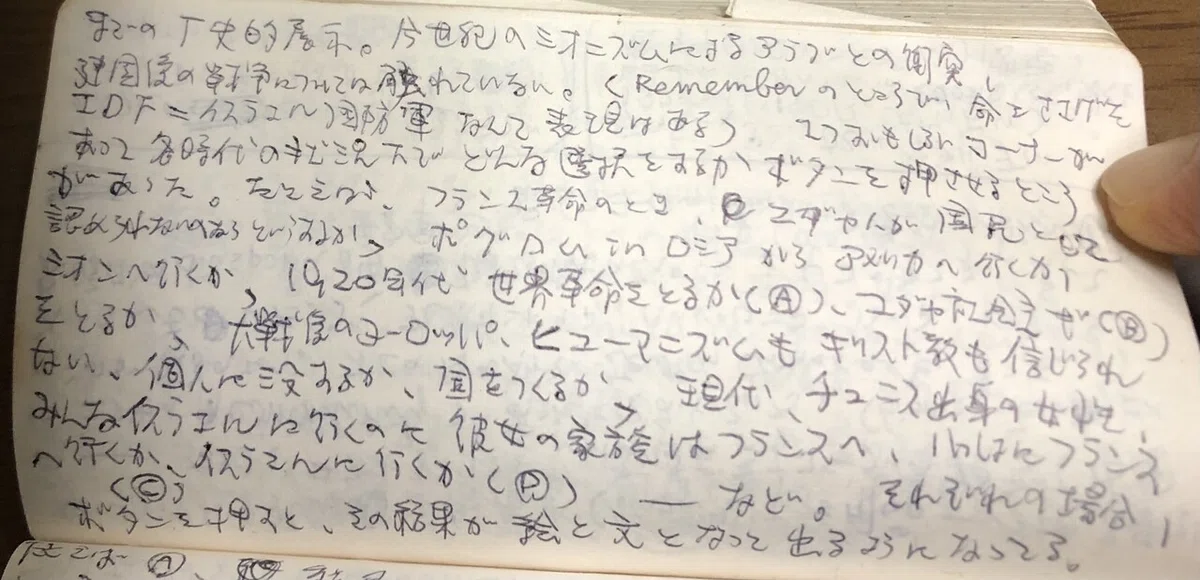 までの歴史的展示。今世紀のシオニズムによるアラブとの衝突、
建国後の戦争については触れていない。(Rememberのところで、命をささげた
IDF=イスラエル国防軍なんて表現はある) 一つおもしろいコーナーが
あって各時代の状況下でどんな選択をするかボタンを押させるところ
があった。たとえば、フランス革命のとき、ユダヤ人が国民として
認められないのなら というするか、ポグロム in ロシアからアメリカへ行くか、
シオンへ行くか、1920年代 世界革命をとるか(A)、ユダヤ社会主ぎ(B)
をとるか、大戦後のヨーロッパ、ヒューマニズムもキリスト教も信じられ
ない、個人に没するか、国をつくるか、現代、チュニス出身の女性で、
みんなイスラエルに行くのに彼女の家族はフランスへ、フランス
へ行くか、イスラエルに行くか(D) ― など。それぞれの場合、
(C)
ボタンを押すと、その結果が絵と文となって出るようになってる。
では(A)、